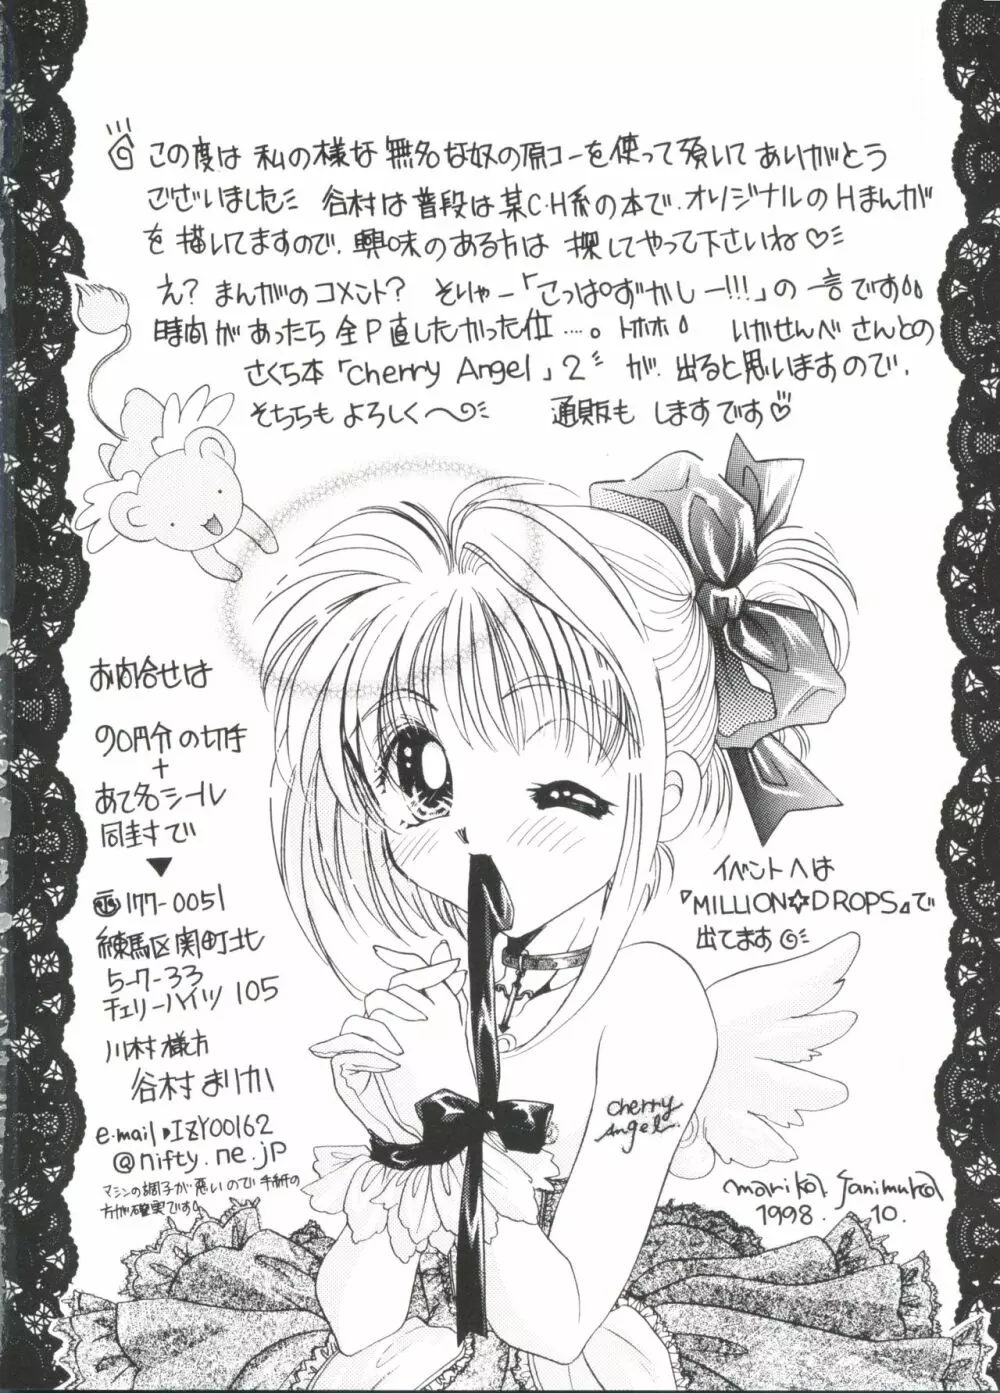 この度は 私の様な 無名な奴の原コーを使って頂いて ありがとう
ございました 谷村は普段は某C・H系の本で、オリジナルのHまんが
を描いてますので、興味のある方は 探してやって下さいね♡
え? まんがのコメント? そりゃー「こっぱずかしー!!!」の一言です
時間があったら 全P直したかった位……。トホホ いかせんべさんとの
さくら本「Cherry Angel」2 が、出ると思いますので、
そちらも よろしく〜 通販も しますです♡
お問合せは
90円分の切手
+
あて名シール
同封で
▼
〒177-0051
練馬区関町北
5-7-33
チェリーハイツ 105
川村様方
谷村まりか
e-mail▶IZY00162
@nifty.ne.jp
マシンの調子が悪いので、手紙の
方が確実です。
イベントへは
『MILLION☆DROPS』で
出てます
Cherry
Angel.
marika. Tanimura
1998. 10.